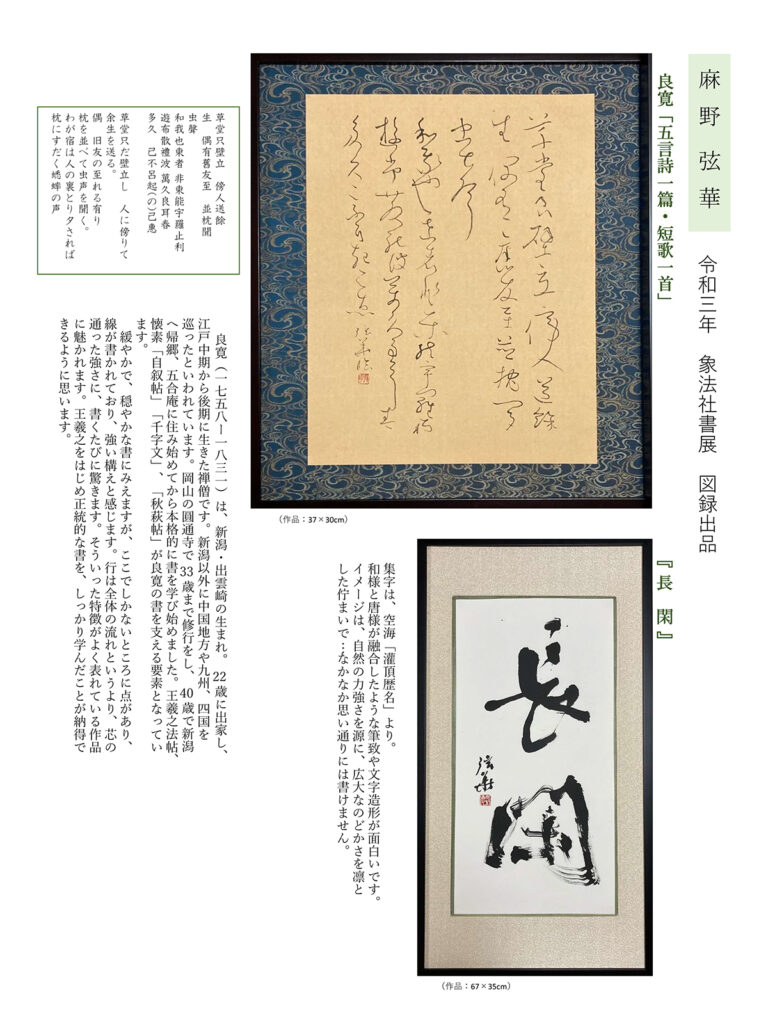 麻野弦華
令和三年　象法社書展　図録出品
良寛「五言詩一篇・短歌一首」
草堂只壁立　傍人送餘
生　偶有舊友至　並枕聞
虫聲
和我也東者　非東能宇羅止利
遊布散禮波　萬久良耳春
多久　己不呂起(の)己恵
草堂只だ壁立し　人に傍りて
余生を送る。
偶　旧友の至れる有り
枕を並べて虫声を聞く。
わが宿は人の裏とり夕されば
枕にすだく蟋蟀の声
（作品：37×30cm）
良寛（一七五八ー一八三一）は、新潟・出雲崎の生まれ。22歳に出家し、
江戸中期から後期に生きた禅僧です。新潟以外に中国地方や九州、四国を
巡ったといわれています。岡山の圓通寺で33歳まで修行をし、40歳で新潟
へ帰郷、五合庵に住み始めてから本格的に書を学び始めました。王羲之法帖、
懐素「自叙帖」「千字文」、「秋萩帖」が良寛の書を支える要素となってい
ます。
緩やかで、穏やかな書にみえますが、ここでしかないところに点があり、
線が書かれており、強い構えと感じます。行は全体の流れというより、芯の
通った強さに、書くたびに驚きます。そういった特徴がよく表れている作品
に魅かれます。王羲之をはじめ正統的な書を、しっかり学んだことが納得で
きるように思います。
『長　閑』
長閑
弦華
集字は、空海「灌頂歴名」より。
和様と唐様が融合したような筆致や文字造形が面白いです。
イメージは、自然の力強さを源に、広大なのどかさを凛と
した佇まいで…なかなか思い通りには書けません。
（作品：67×35cm）